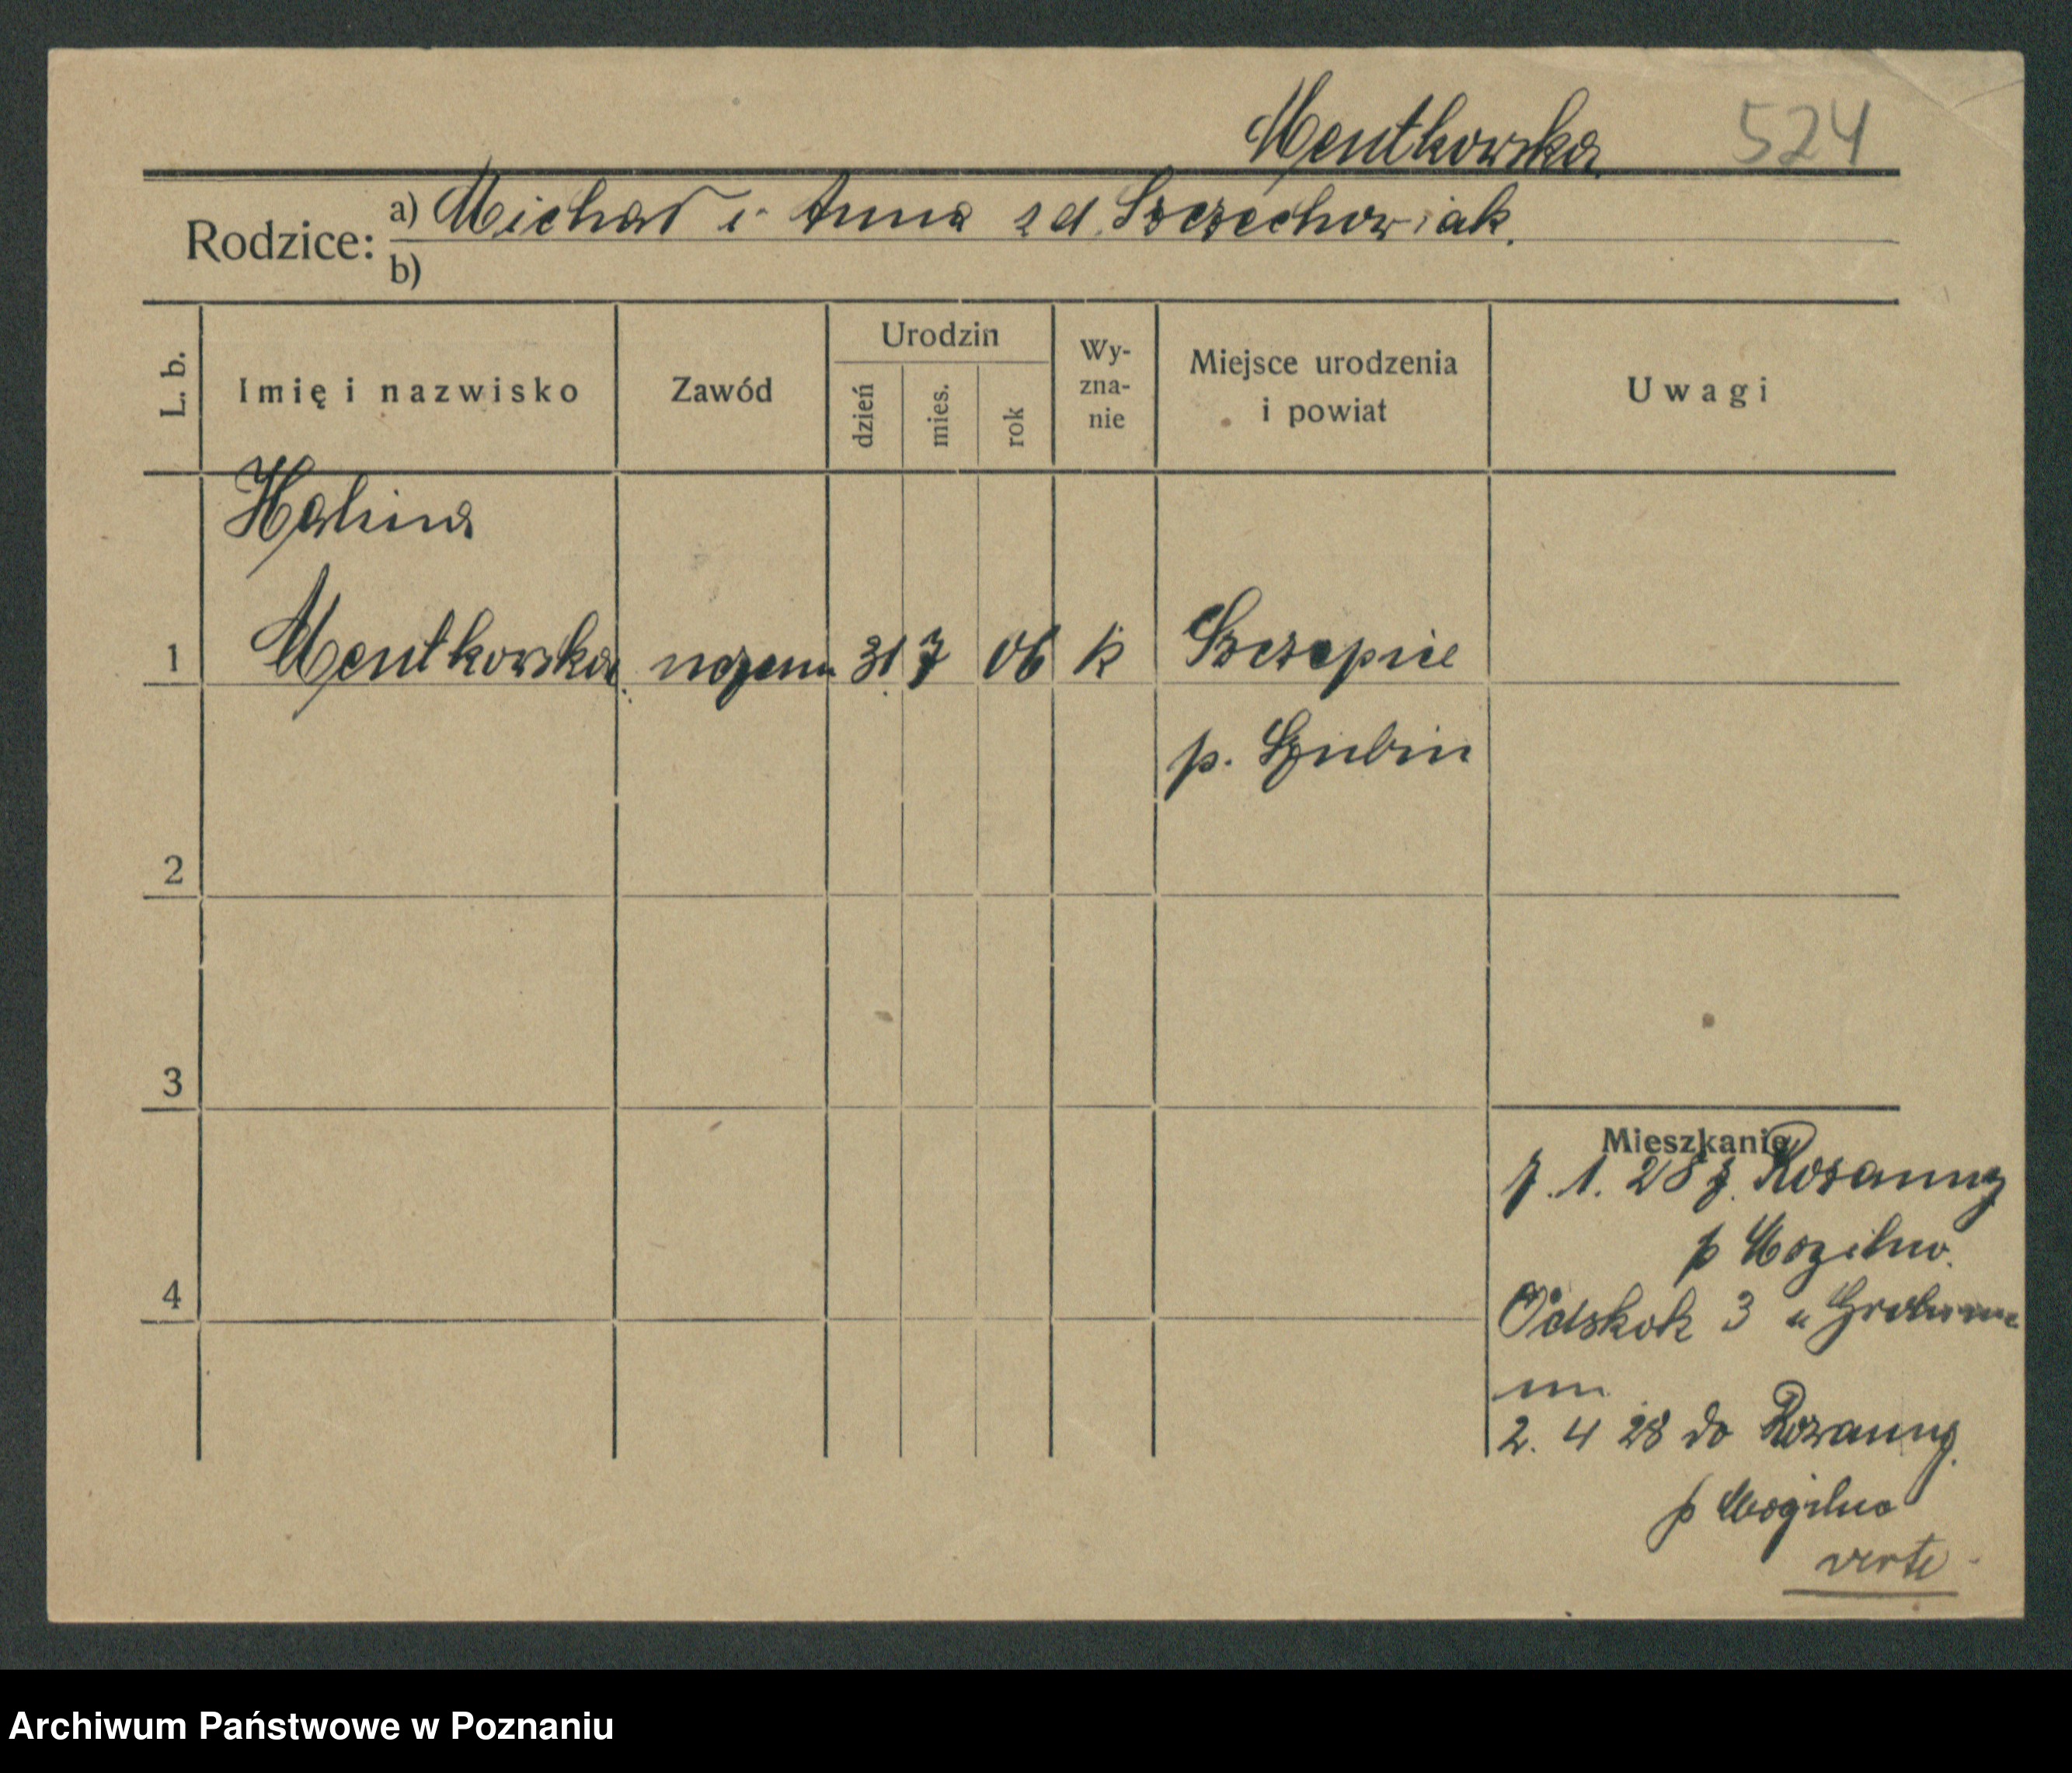 Mentkowska 524
Rodzice: a) Michał i Anna zd. Szczechowiak.
b)
L. b. Imię i nazwisko Zawód Urodzin dzień mies. rok Wy-zna-nie Miejsce urodzenia i powiat Uwagi
Halina
1 Mentkowska 31 7 06 k Szczepice
p. Szubin
2
3
Mieszkanie
1. 28 z Rozanny
p Mogilno.
4
Odskok 3 u
2. 4 28 do Rozanny
p Mogilno
verte
Archiwum Państwowe w Poznaniu